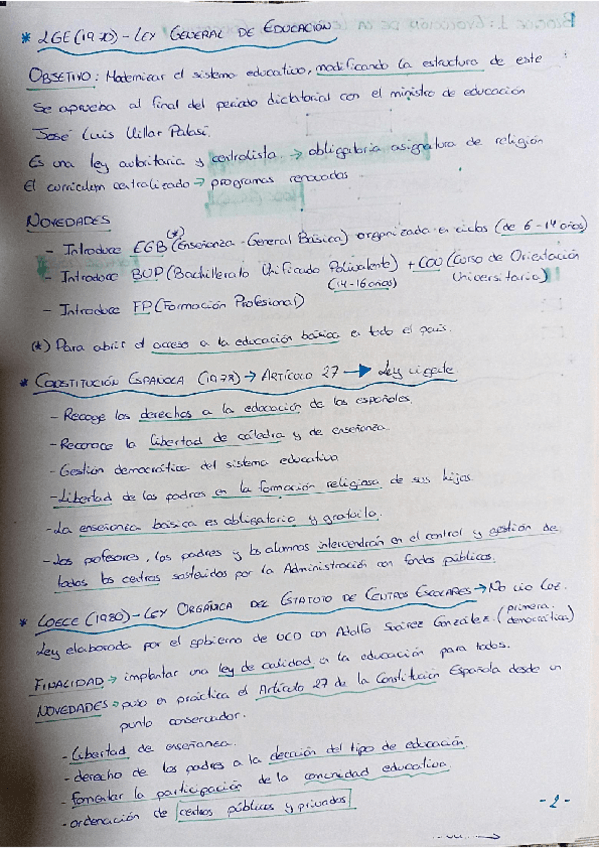 * LGE (1970) - LEY GENERAL DE EDUCACIÓN
OBJETIVO: Modernizar el sistema educativo, modificando la estructura de este
Se aprueba al final del periodo dictatorial con el ministro de educación
José Luis Villar Palasí.
Es una ley autoritaria y centralista → obligatoria asignatura de religión
El curriculum centralizado → programas renovados
NOVEDADES
- Introduce EGB (*) (Enseñanza General Básica) organizada en ciclos (de 6 - 14 años)
- Introduce BUP (Bachillerato Unificado Polivalente) + COU (Curso de Orientación
(14-16 años) Universitaria)
- Introduce FP (Formación Profesional)
(*) Para abrir el acceso a la educación básica en todo el país.
* CONSTITUCIÓN ESPAÑOLA (1978) → ARTÍCULO 27 → Ley vigente
- Recoge los derechos a la educación de los españoles.
- Reconoce la libertad de cátedra y de enseñanza.
- Gestión democrática del sistema educativo
- Libertad de los padres en la formación religiosa de sus hijos.
- La enseñanza básica es obligatoria y gratuita.
- Los profesores, los padres y los alumnos intervendrán en el control y gestión de
todos los centros sostenidos por la Administración con fondos públicos.
* LOECE (1980) - LEY ORGÁNICA DEL ESTATUTO DE CENTROS ESCOLARES → No vio luz.
Ley elaborada por el gobierno de UCD con Adolfo Suárez González. (primera democrática)
FINALIDAD → implantar una ley de calidad en la educación para todos.
NOVEDADES → puso en práctica el Artículo 27 de la Constitución Española desde un
punto conservador.
- Libertad de enseñanza.
- derecho de los padres a la elección del tipo de educación.
- fomentar la participación de la comunidad educativa.
- ordenación de centros públicos y privados
- 2 -